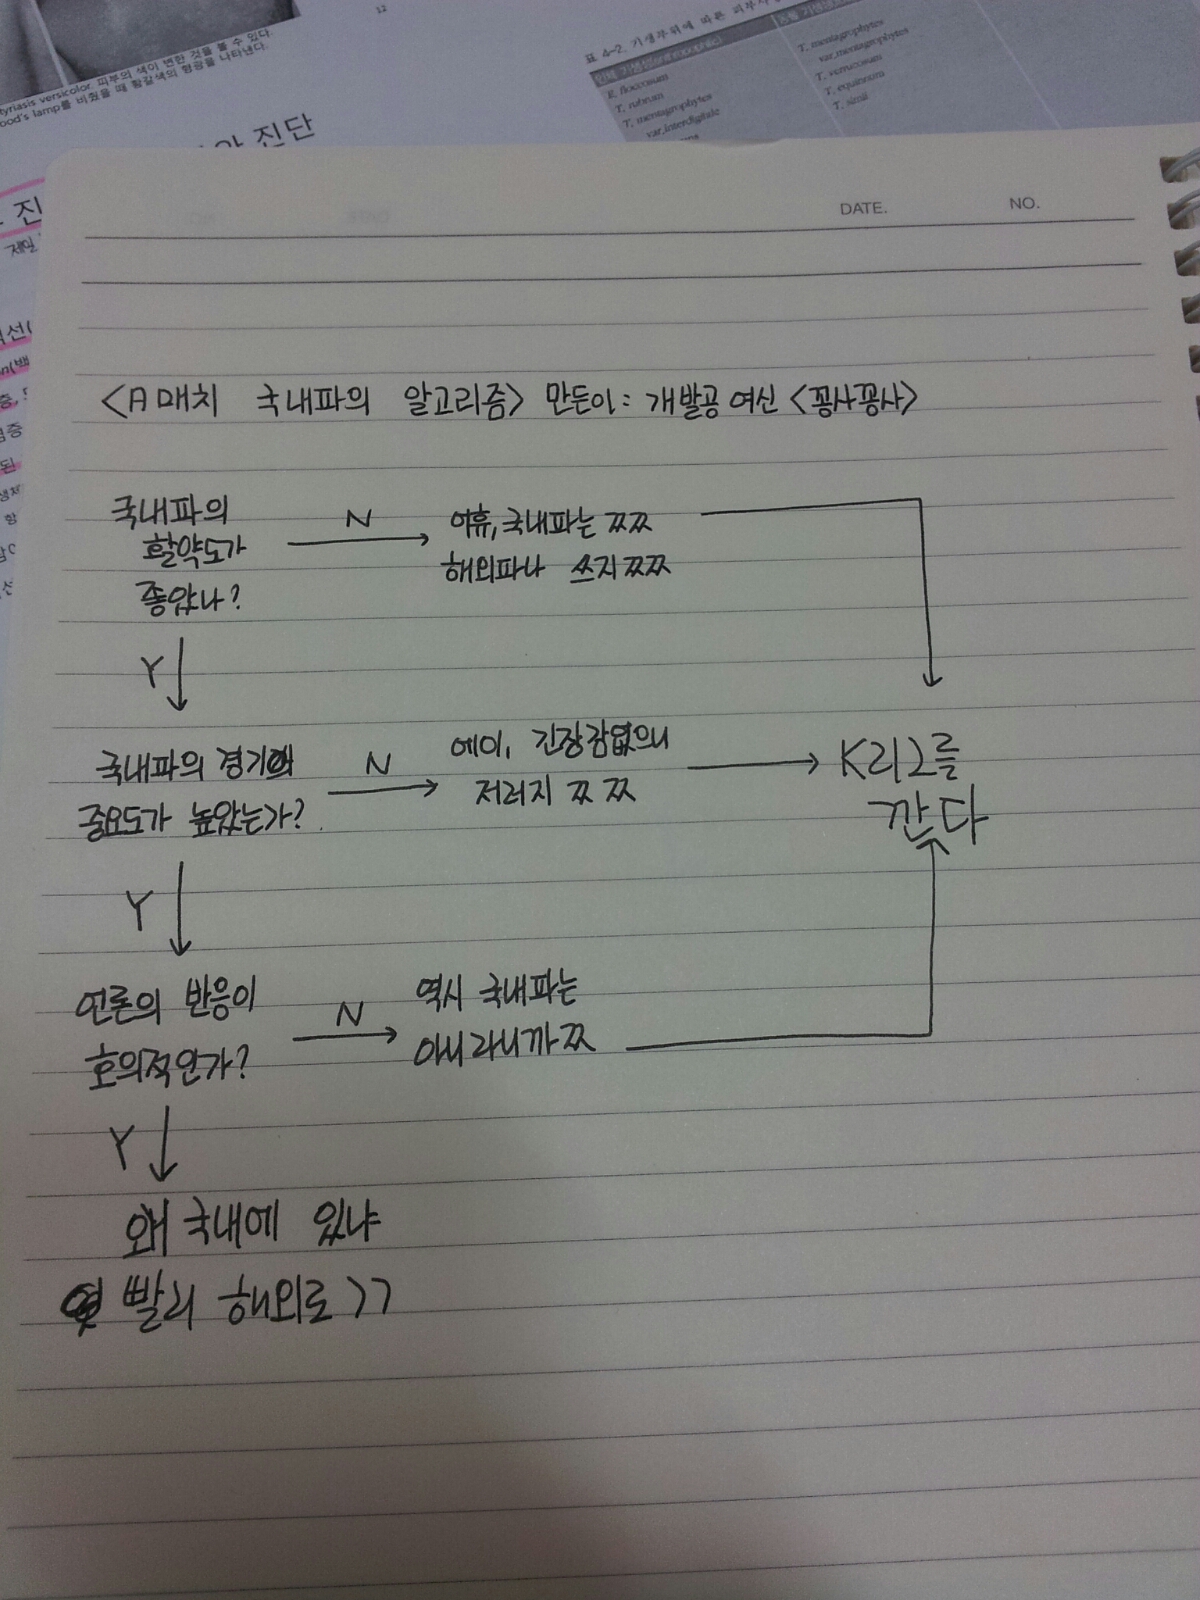 12
tyriasis versicolor. 피부의 색이 변한 것을 볼 수 있다.
ood's lamp를 비췄을 때 황갈색의 형광을 나타낸다.
진단
표 4-2. 기생부위에 따른 피부사
E. floccosum
T. rubrum
T. mentagrophytes
var.interdigitale
T. mentagrophytes
var.mentagrophytes
T. verrucosum
T. equinum
T. simii
진
제일
DATE.
NO.
<A매치 국내파의 알고리즘> 만든이: 개발공 여신 <꽁사꽁사>
국내파의
활약도가
좋았나?
N
어휴, 국내파는 ㅉㅉ
해외파나 쓰지 ㅉㅉ
Y
국내파의 경기의
중요도가 높았는가?
N
에이, 긴장감없으니
저러지 ㅉ ㅉ
K리그를
깐다
Y
언론의 반응이
호의적인가?
N
역시 국내파는
아니라니까 ㅉ
Y
왜 국내에 있냐
빨리 해외로 ㄱㄱ